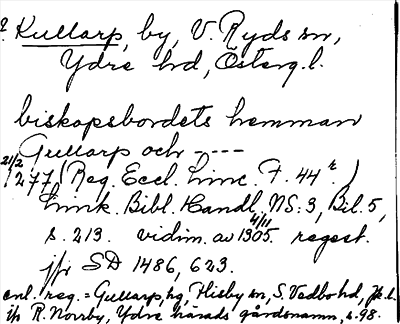 ? Kullarp, by, V. Ryds sn,
Ydre hd, Österg.l.
biskopsbordets hemman
Gullarp och ----
21/2 1277 (Reg. Eccl. Linc. F. 44 r.)
Link. Bibl. Handl. NS. 3, Bil. 5,
s. 213. vidim. av 4/11 1305. regest.
jfr SD 1486, 623.
enl. reg. = Gullarp, hg, Flisby sn, S. Vedbo hd, Jk.l.
jfr R. Norrby, Ydre härads gårdsnamn, s. 98.